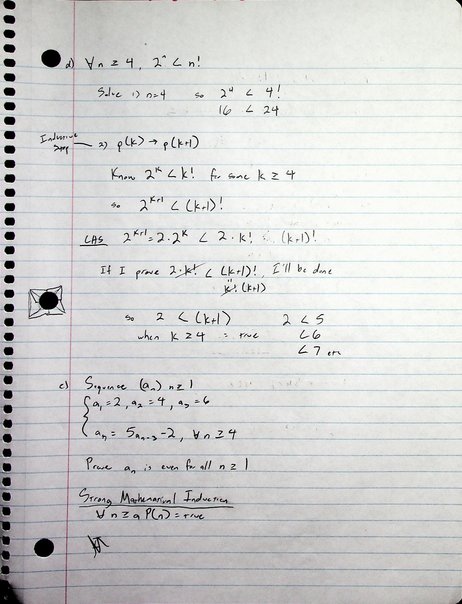 d) ∀n ≥ 4, 2^n < n!
Solve 1) n=4 so 2^4 < 4!
16 < 24
Inductive Step — 2) p(k) → p(k+1)
Know 2^k < k! for some k ≥ 4
so 2^{k+1} < (k+1)!
LHS 2^{k+1} = 2·2^k < 2·k! (k+1)!
If I prove 2·k! < (k+1)!, I'll be done
k!·(k+1)
so 2 < (k+1) 2 < 5
when k ≥ 4 = true < 6
< 7 etc
e) Sequence (a_n) n ≥ 1
{ a_1 = 2, a_2 = 4, a_3 = 6
a_n = 5a_{n-3} - 2, ∀n ≥ 4
Prove a_n is even for all n ≥ 1
Strong Mathematical Induction
∀ n ≥ a P(n) = true